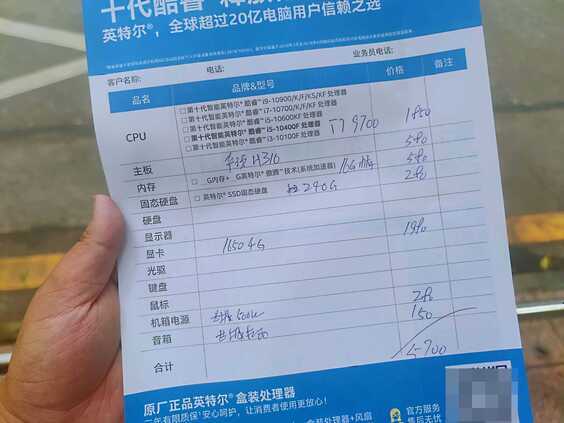 十代酷睿
英特尔®，全球超过20亿电脑用户信赖之选
客户名称： 电话： 业务员电话：
品名 品牌&型号 价格 备注
CPU
□ 第十代智能英特尔® 酷睿™ i9-10900/K/F/KS/KF 处理器
□ 第十代智能英特尔® 酷睿™ i7-10700/K/F/KF 处理器
□ 第十代智能英特尔® 酷睿™ i5-10600KF 处理器
□ 第十代智能英特尔® 酷睿™ i5-10400F 处理器
□ 第十代智能英特尔® 酷睿™ i3-10100F 处理器
I7 9700 1850
主板 H310 580
内存 □ G内存+ G英特尔® 傲腾™ 技术(系统加速器) 16G 580
固态硬盘 □ 英特尔® SSD固态硬盘 240G 280
硬盘
显示器
显卡 1650 4G 1980
光驱
键盘
鼠标
机箱电源 500W 280
音箱 150
合计 5700
原厂正品英特尔® 盒装处理器
三年有限质保¹安心呵护，让消费者使用更放心！
盒装处理器+风扇
官方服务
售后无忧